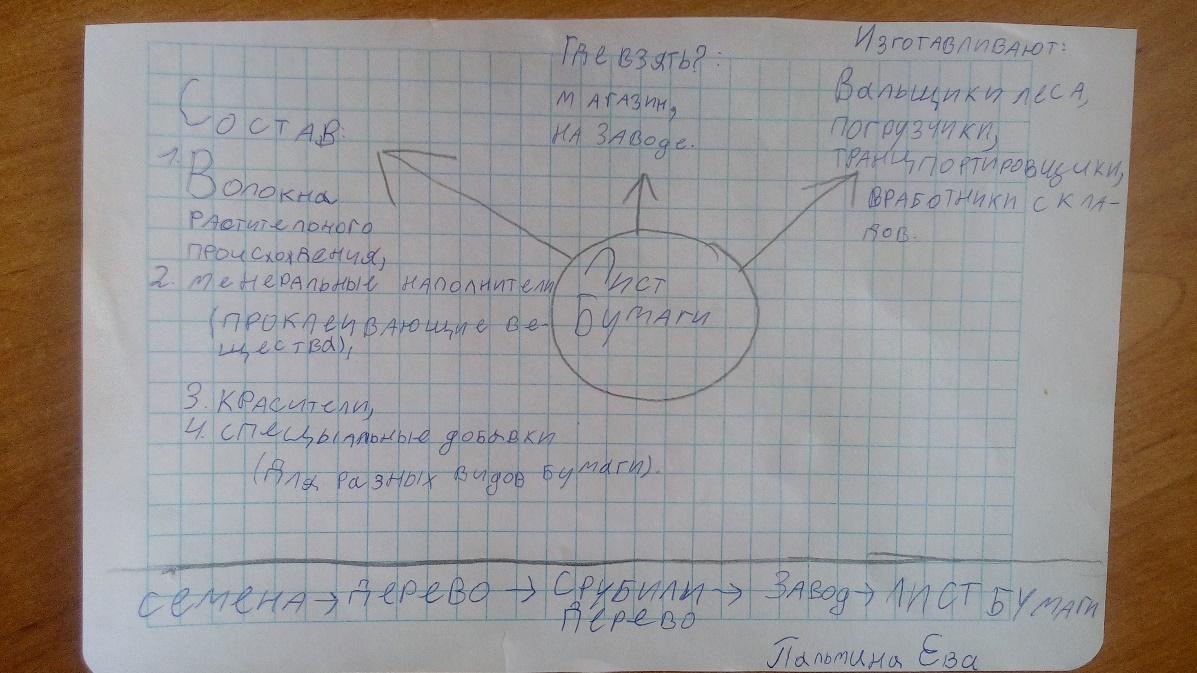 Состав:
1. Волокна
растительного
происхожвения,
2. менеральные наполнители
(проклеивающие ве-
щества),
3. красители,
4. спецыальные добывки
(для разных видов бумаги).
Где взять?:
магазин,
на заводе.
Изготавливают:
Вальщики леса,
погрузчики,
транцпортировщики,
вработники скла-
дов.
Лист
Бумаги
семена → дерево → срубили → завод → лист бумаги
дерево
Пальмина Ева